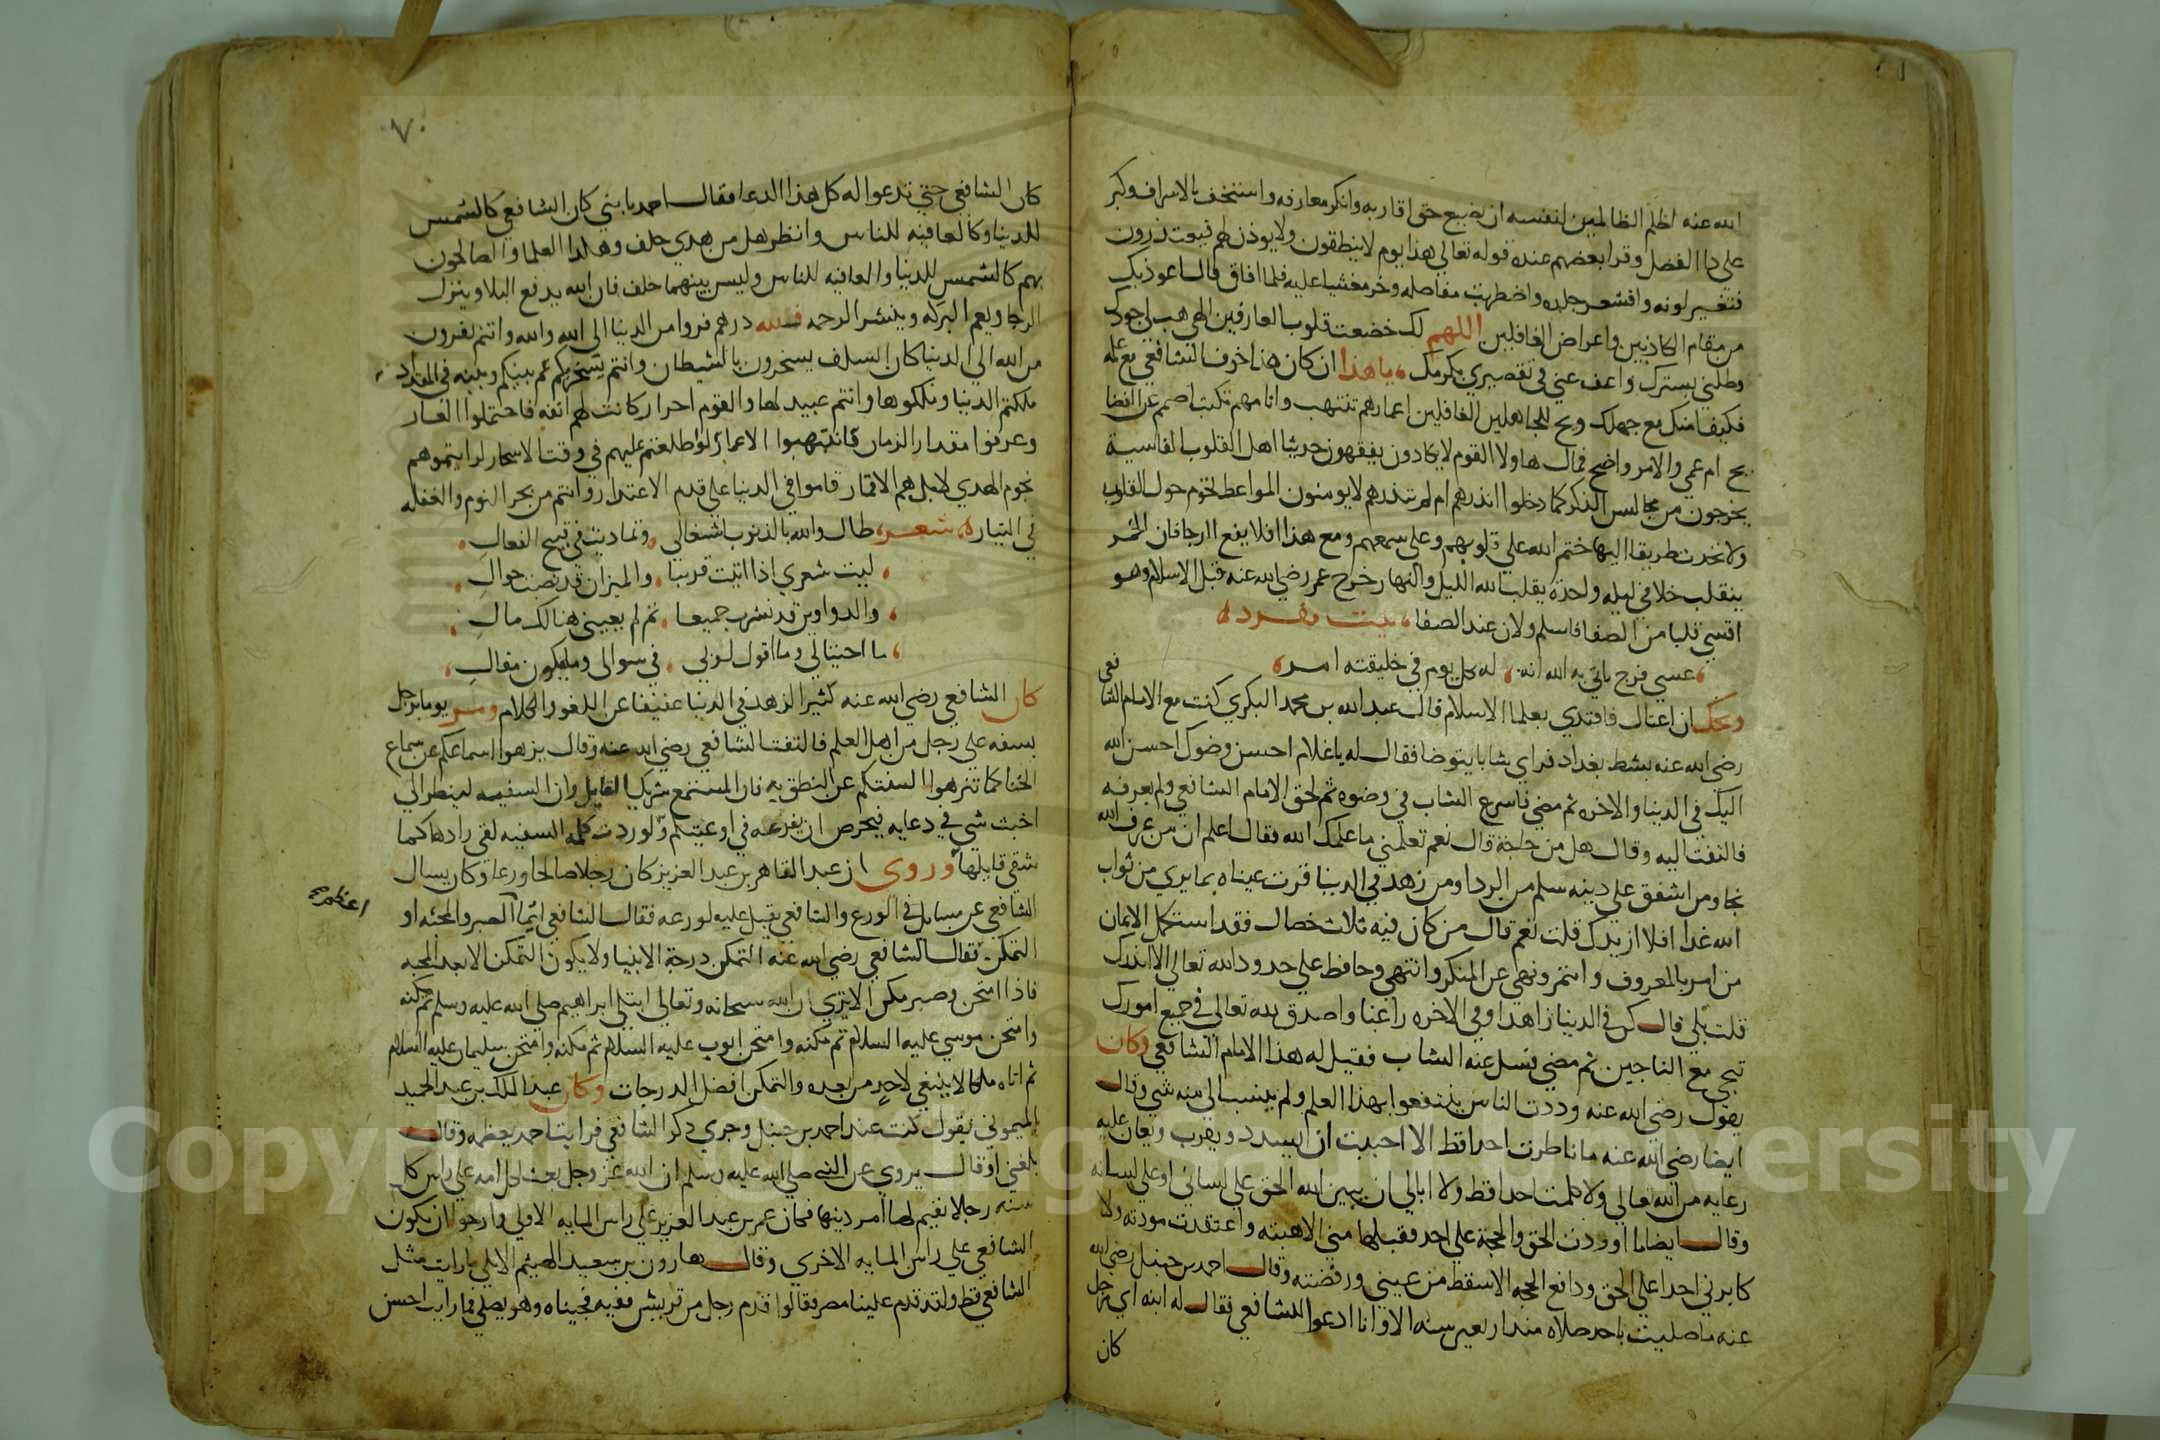 الله عنه اظلم الظالمين لنفسه ان يضيع حق اقاربه وانكر معارفه واستخف بالاشراف وكبر
علي دا الفضل وقرا بعضهم عنده قوله تعالي هذا يوم لا ينطقون ولا يوذن لهم فيعتذرون
فتغير لونه واقشعر جلده واضطربت مفاصله وخر مغشيا عليه فلما افاق قال اعوذ بك
من مقام الكاذبين واعراض الغافلين اللهم لك خضعت قلوب العارفين الهي هب لي جودك
وجللني بسترك واعف عني في تقصيري بكرمك ياهذا ان كان هذا خوف الشافعي مع علمه
فكيف امنك مع جهلك ويح الجاهلين الغافلين اعمارهم تنتهب
ام عمي والامر واضح فمال هاولا القوم لا يكادون يفقهون حديثا اهل القلوب القاسية
يخرجون من مجالس الذكر كما دخلوا اانذرهم ام لم تنذرهم لا يومنون المواعظ تحوم حول القلوب
ولا تجد طريقا اليها ختم الله علي قلوبهم وعلي سمعهم ومع هذا افلا يقع الرجا فان الخمر
ينقلب خلا في ليله واحدة يقلب الله الليل والنهار خرج عمر رضي الله عنه قبل الاسلام وهو
اقسي قلبا من الصفا فاسلم ولان عند الصفا بيت مفرده
عسي فرج ياتي به الله انه له كل يوم في خليقته امر
ويحك ان فاقتدي بعلما الاسلام قال عبد الله بن محمد البكري كنت مع الامام الشافعي
رضي الله عنه بشط بغداد فراي شابا يتوضا فقال له ياغلام احسن وضوك احسن الله
اليك في الدنيا والاخره ثم مضي فاسرع الشاب في وضوه ثم لحق الامام الشافعي ولم يعرفه
فالتفت اليه وقال هل من حاجة قال نعم تعلمني ما علمك الله فقال اعلم ان من عرف الله
نجا ومن اشفق علي دينه سلم من الردا ومن زهد في الدنيا قرت عيناه بما يري من ثواب
الله غدا افلا ازيدك قلت نعم قال من كان فيه ثلاث خصال فقد استكمل الايمان
من امر بالمعروف وائتمر ونهي عن المنكر وانتهي وحافظ علي حدود الله تعالي الا ازيدك
قلت بلي قال كن في الدنيا زاهدا وفي الاخره راغبا واصدق لله تعالي في جميع امورك
تنجي مع الناجين ثم مضي فسل عنه الشاب فقيل له هذا الامام الشافعي وكان
يقول رضي الله عنه وددت الناس ينتفعوا بهذا العلم ولم ينسب الي منه شي وقال
ايضا رضي الله عنه ما ناظرت احدا قط الا احببت ان يسدد ويعان عليه
رعايه من الله تعالي ولا كلمت احدا قط ولا ابالي ان يبين الله الحق علي لساني او علي لسانه
وقال ايضا ما اوردت الحق والحجة علي احد فقبلها مني الا هبته واعتقدت مودته ولا
كابرني احدا علي الحق ودافع الحجه الا سقط من عيني ورفضته وقال احمد بن حنبل رضي الله
عنه ما صليت باحد صلاه منذ اربعين سنه الا وانا ادعوا للشافعي فقال له ابنه اي رجل
كان
٧٠
كان الشافعي حتي تدعوا له كل هذا الدعا فقال احمد يا بني كان الشافعي كالشمس
للدنيا وكالعافيه للناس وانظر هل من هدي خلف وهكذا العلما والصالحون
بهم كالشمس للدنيا والعافيه للناس وليس بينهما خلف فان الله يدفع البلا وينزل
الرجا ويعم البركه وينشر الرحمه فلله درهم فروا من الدنيا الي الله والله وانتم تفرون
من الله الي الدنيا كان السلف يسخرون بالشيطان وانتم يسخر بكم كم بينكم وبينه في المقدار
ملكتم الدنيا وملكوها وانتم عبيد لها والقوم احرار كانت لهم انفه فاحتملوا
وعرفوا مقدار الزمان فانتهبوا الاعمار لو اطلعتم عليهم في وقت الاسحار لرايتموهم
نجوم الهدي لا بل هم الاقمار قاموا في الدنيا علي قدم الاعتذار وانتم من بحر النوم والغفله
في التيار شعر طال والله بالذنوب اشتغالي وتماديت في قبيح الفعال
ليت شعري اذا اتيت قريبا والميزان قد نصت حوال
والدواوين قد نشرن جميعا ثم لم يعيني هنالك مال
ما احتيالي وما اقول لربي في سوالي وما يكون مقالي
كان الشافعي رضي الله عنه كثير الزهد في الدنيا عفيفا عن اللغو والكلام ومر يوما برجل
يسفه علي رجل من اهل العلم فالتفت الشافعي رضي الله عنه وقال نزهوا اسماعكم عن سماع
الخنا كما تنزهوا السنتكم عن النطق به فان المستمع شريك القايل وان السفيه لينظر الي
اخبث شي في دعايه فيحرص ان يفرغه في اوعيتكم ولو ردت كلمة السفيه لقي رادها كما
شقي قايلها وروي ان عبد القاهر بن عبد العزيز كان رجلا صالحا ورعا وكان يسال
الشافعي عن مسايل في الورع والشافعي يقبل عليه لورعه فقال الشافعي ايما الصبر والمحنه او
اعظم
التمكن فقال الشافعي رضي الله عنه التمكن درجة الانبيا ولا يكون التمكن الا بعد المحنه
فاذا امتحن وصبر مكن الا تري ان الله سبحانه وتعالي ابتلي ابراهيم صلي الله عليه وسلم ثم مكنه
وامتحن موسي عليه السلام ثم مكنه وامتحن ايوب عليه السلام ثم مكنه وامتحن سليمان عليه السلام
ثم اتاه ملكا لا ينبغي لاحد من بعده والتمكن افضل الدرجات وكان عبد الملك بن عبد الحميد
الميموني يقول كنت عند احمد بن حنبل وجري ذكر الشافعي فرايت احمد يعظمه وقال
بلغني او قال يروي عن النبي صلي الله عليه وسلم ان الله عز وجل يبعث لهذه الامه علي راس كل
سنه رجلا يقيم لها امر دينها فكان عمر بن عبد العزيز علي راس المايه الاولي وارجوا ان يكون
الشافعي علي راس المايه الاخري وقال هارون بن سعيد الهيثم الايلي ما رايت مثل
الشافعي قط ولقد قدم علينا مصر فقالوا قدم رجل من قريش فقيه فجيناه وهو يصلي فما رايت احسن
Copyright © King Saud University